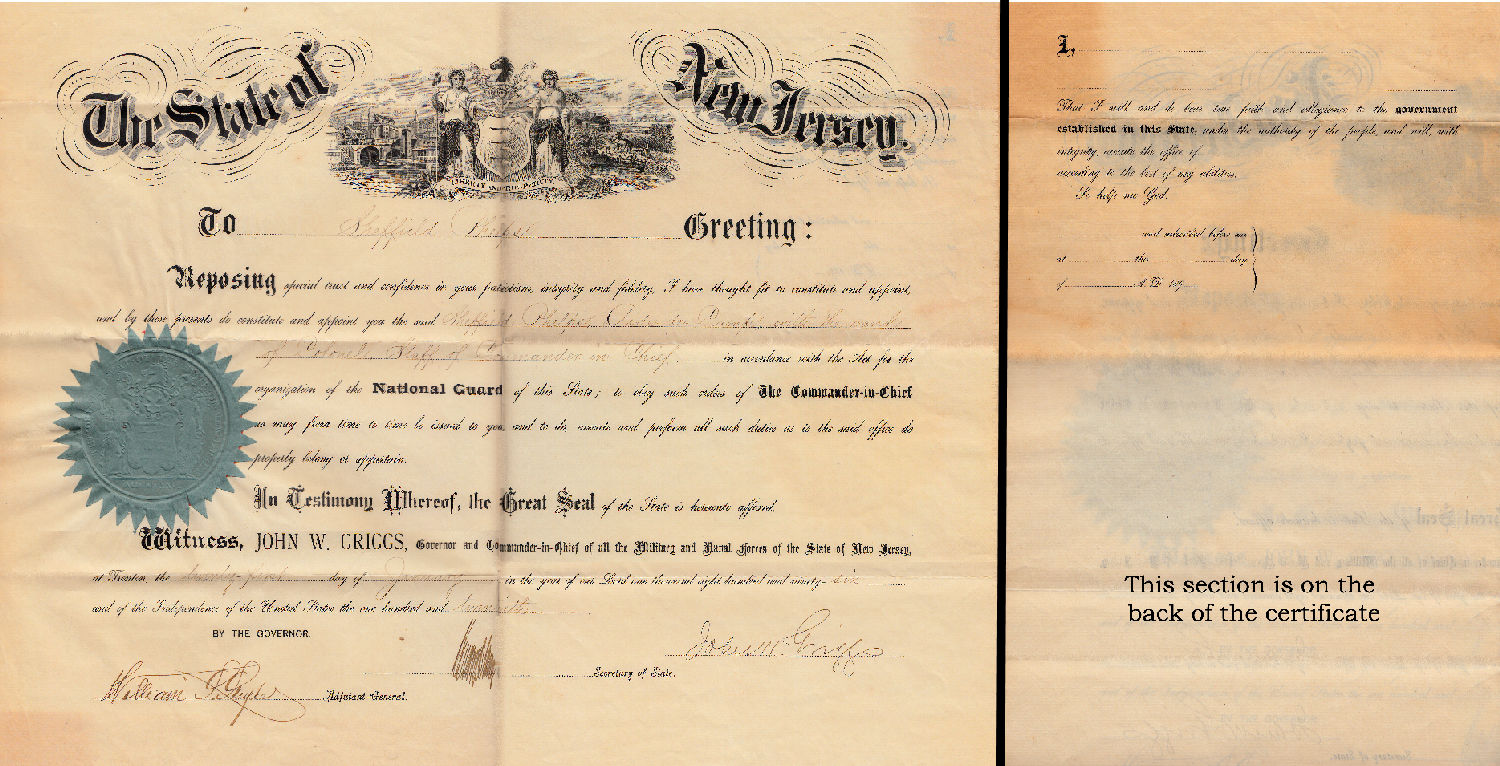 The State of New Jersey.
LIBERTY AND PROSPERITY
To Sheffield Phelps Greeting:
Reposing special trust and confidence in your patriotism, integrity and fidelity, I have thought fit to constitute and appoint,
and by these presents do constitute and appoint you the said Sheffield Phelps Aide-de-Camp with the rank
of Colonel Staff of Commander in Chief. in accordance with the Act for the
organization of the National Guard of this State; to obey such orders of The Commander-in-Chief
as may from time to time be issued to you and to do, execute and perform all such duties as to the said office do
properly belong or appertain.
In Testimony Whereof, the Great Seal of the State is hereunto affixed.
Witness, JOHN W. GRIGGS, Governor and Commander-in-Chief of all the Military and Naval Forces of the State of New Jersey,
at Trenton, the twenty-first day of January in the year of our Lord one thousand eight hundred and ninety-six
and of the Independence of the United States the one hundred and twentieth.
BY THE GOVERNOR.
John W. Griggs
Secretary of State.
William S. Stryker Adjutant General.
I,
That I will and do bear true faith and allegiance to the government
established in this State, under the authority of the people, and will, with
integrity, execute the office of
according to the best of my abilities.
So help me God.
and subscribed before me
at the day
of A.D. 189
This section is on the
back of the certificate